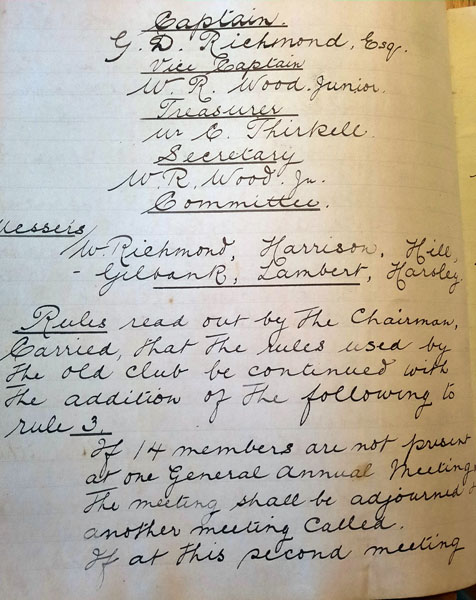 Captain.
G. D. Richmond, Esq.
Vice Captain
W. R. Wood. Junior.
Treasurer
Mr C. Thirkell.
Secretary
W. R. Wood. Jn.
Committee.
Messers
W. Richmond, Harrison, Hill,
- Gilbank, Lambert, Harsley
Rules read out by the Chairman,
Carried, that the rules used by
the old club be continued with
the addition of the following to
rule 3.
If 14 members are not present
at one General Annual Meeting
the meeting shall be adjourned &
another meeting called.
If at this second meeting